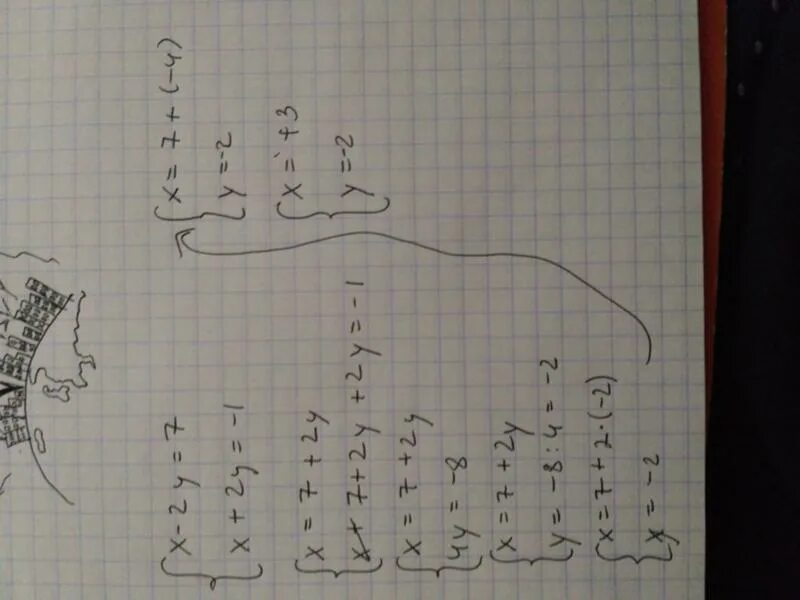 { x - 2y = 7
x + 2y = -1
{ x = 7 + 2y
7 + 2y + 2y = -1
{ x = 7 + 2y
4y = -8
{ x = 7 + 2y
y = -8 : 4 = -2
{ x = 7 + 2 · (-2)
y = -2
{ x = 7 + (-4)
y = -2
{ x = +3
y = -2